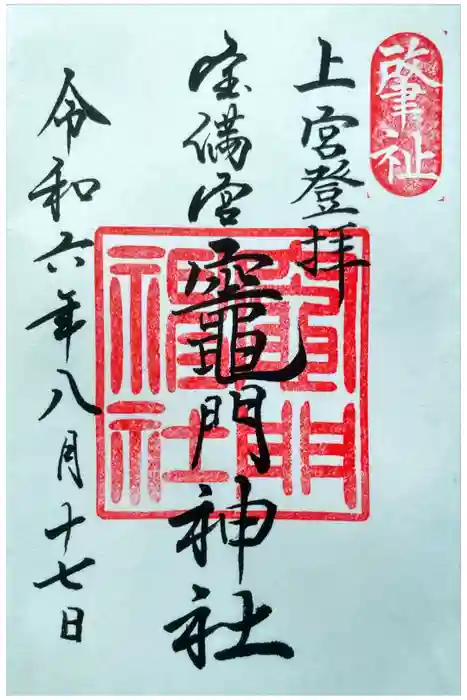 肇祉
上宮登拝
宝満宮竈門神社
竈門神社
令和六年八月十七日